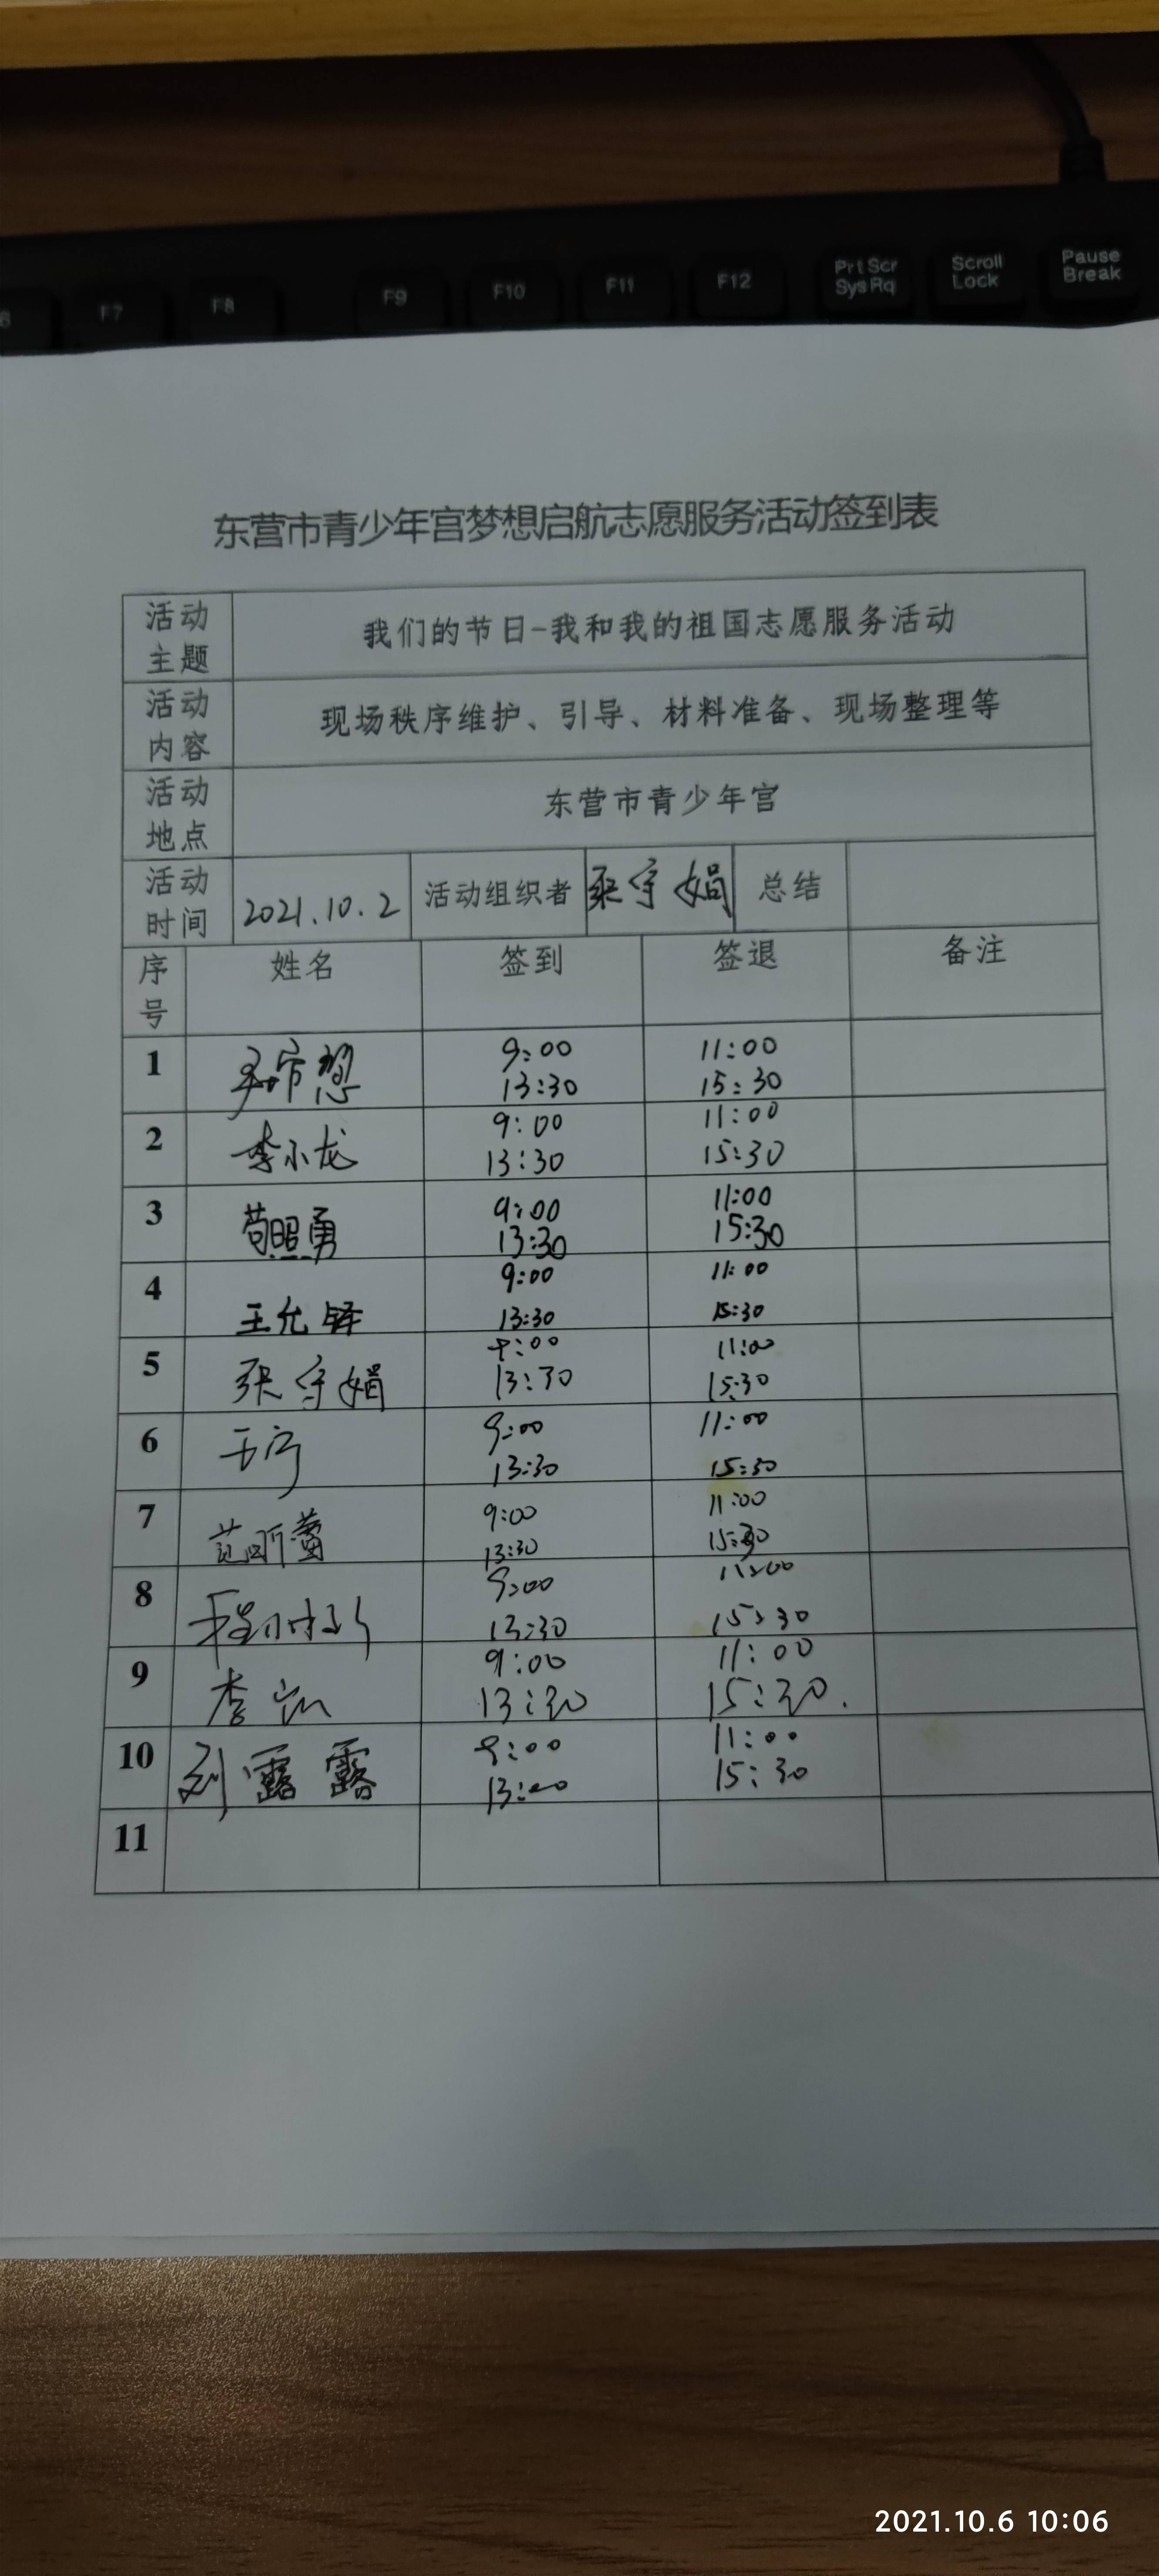 6 F7 F8 F9 F10 F11 F12 PrtScr SysRq Scroll Lock Pause Break
东营市青少年宫梦想启航志愿服务活动签到表
活动主题 我们的节日-我和我的祖国志愿服务活动
活动内容 现场秩序维护、引导、材料准备、现场整理等
活动地点 东营市青少年宫
活动时间 2021.10.2 活动组织者 张守娟 总结
序号 姓名 签到 签退 备注
1 9:00 11:00
13:30 15:30
2 李小龙 9:00 11:00
13:30 15:30
3 苟照勇 9:00 11:00
13:30 15:30
4 王允铎 9:00 11:00
13:30 15:30
5 张守娟 9:00 11:00
13:30 15:30
6 9:00 11:00
13:30 15:30
7 范昕蕾 9:00 11:00
13:30 15:30
8 9:00 11:00
13:30 15:30
9 李凯 9:00 11:00
13:30 15:30.
10 刘露露 9:00 11:00
15:30
11
2021.10.6 10:06